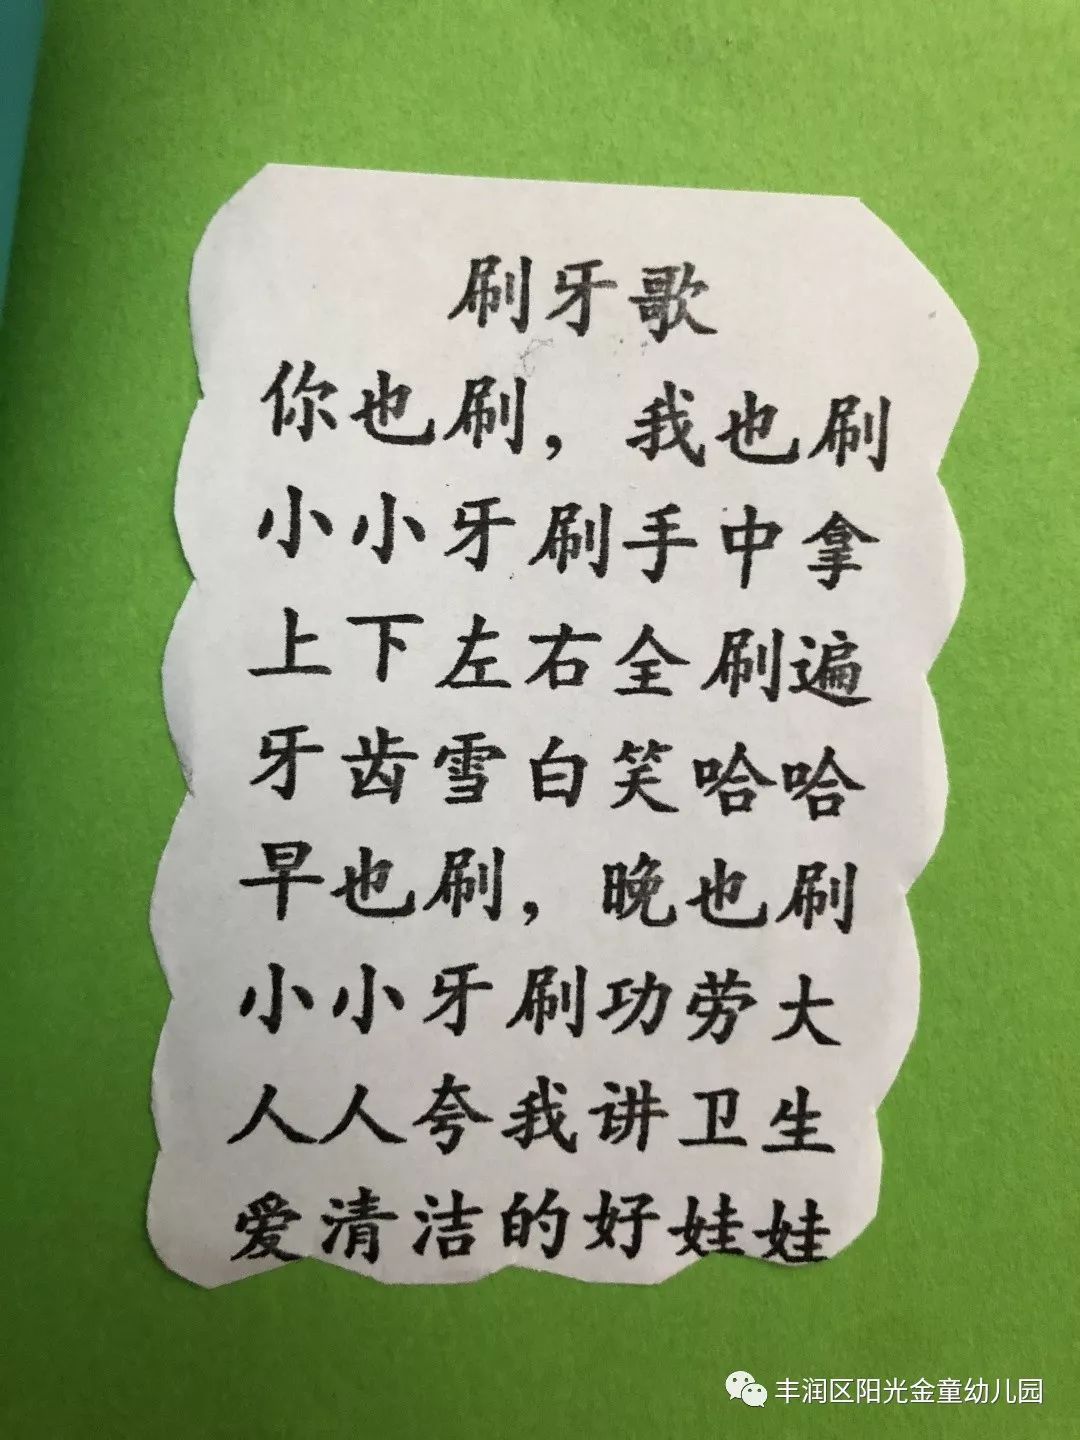 刷牙歌
你也刷，我也刷
小小牙刷手中拿
上下左右全刷遍
牙齿雪白笑哈哈
早也刷，晚也刷
小小牙刷功劳大
人人夸我讲卫生
爱清洁的好娃娃
丰润区阳光金童幼儿园